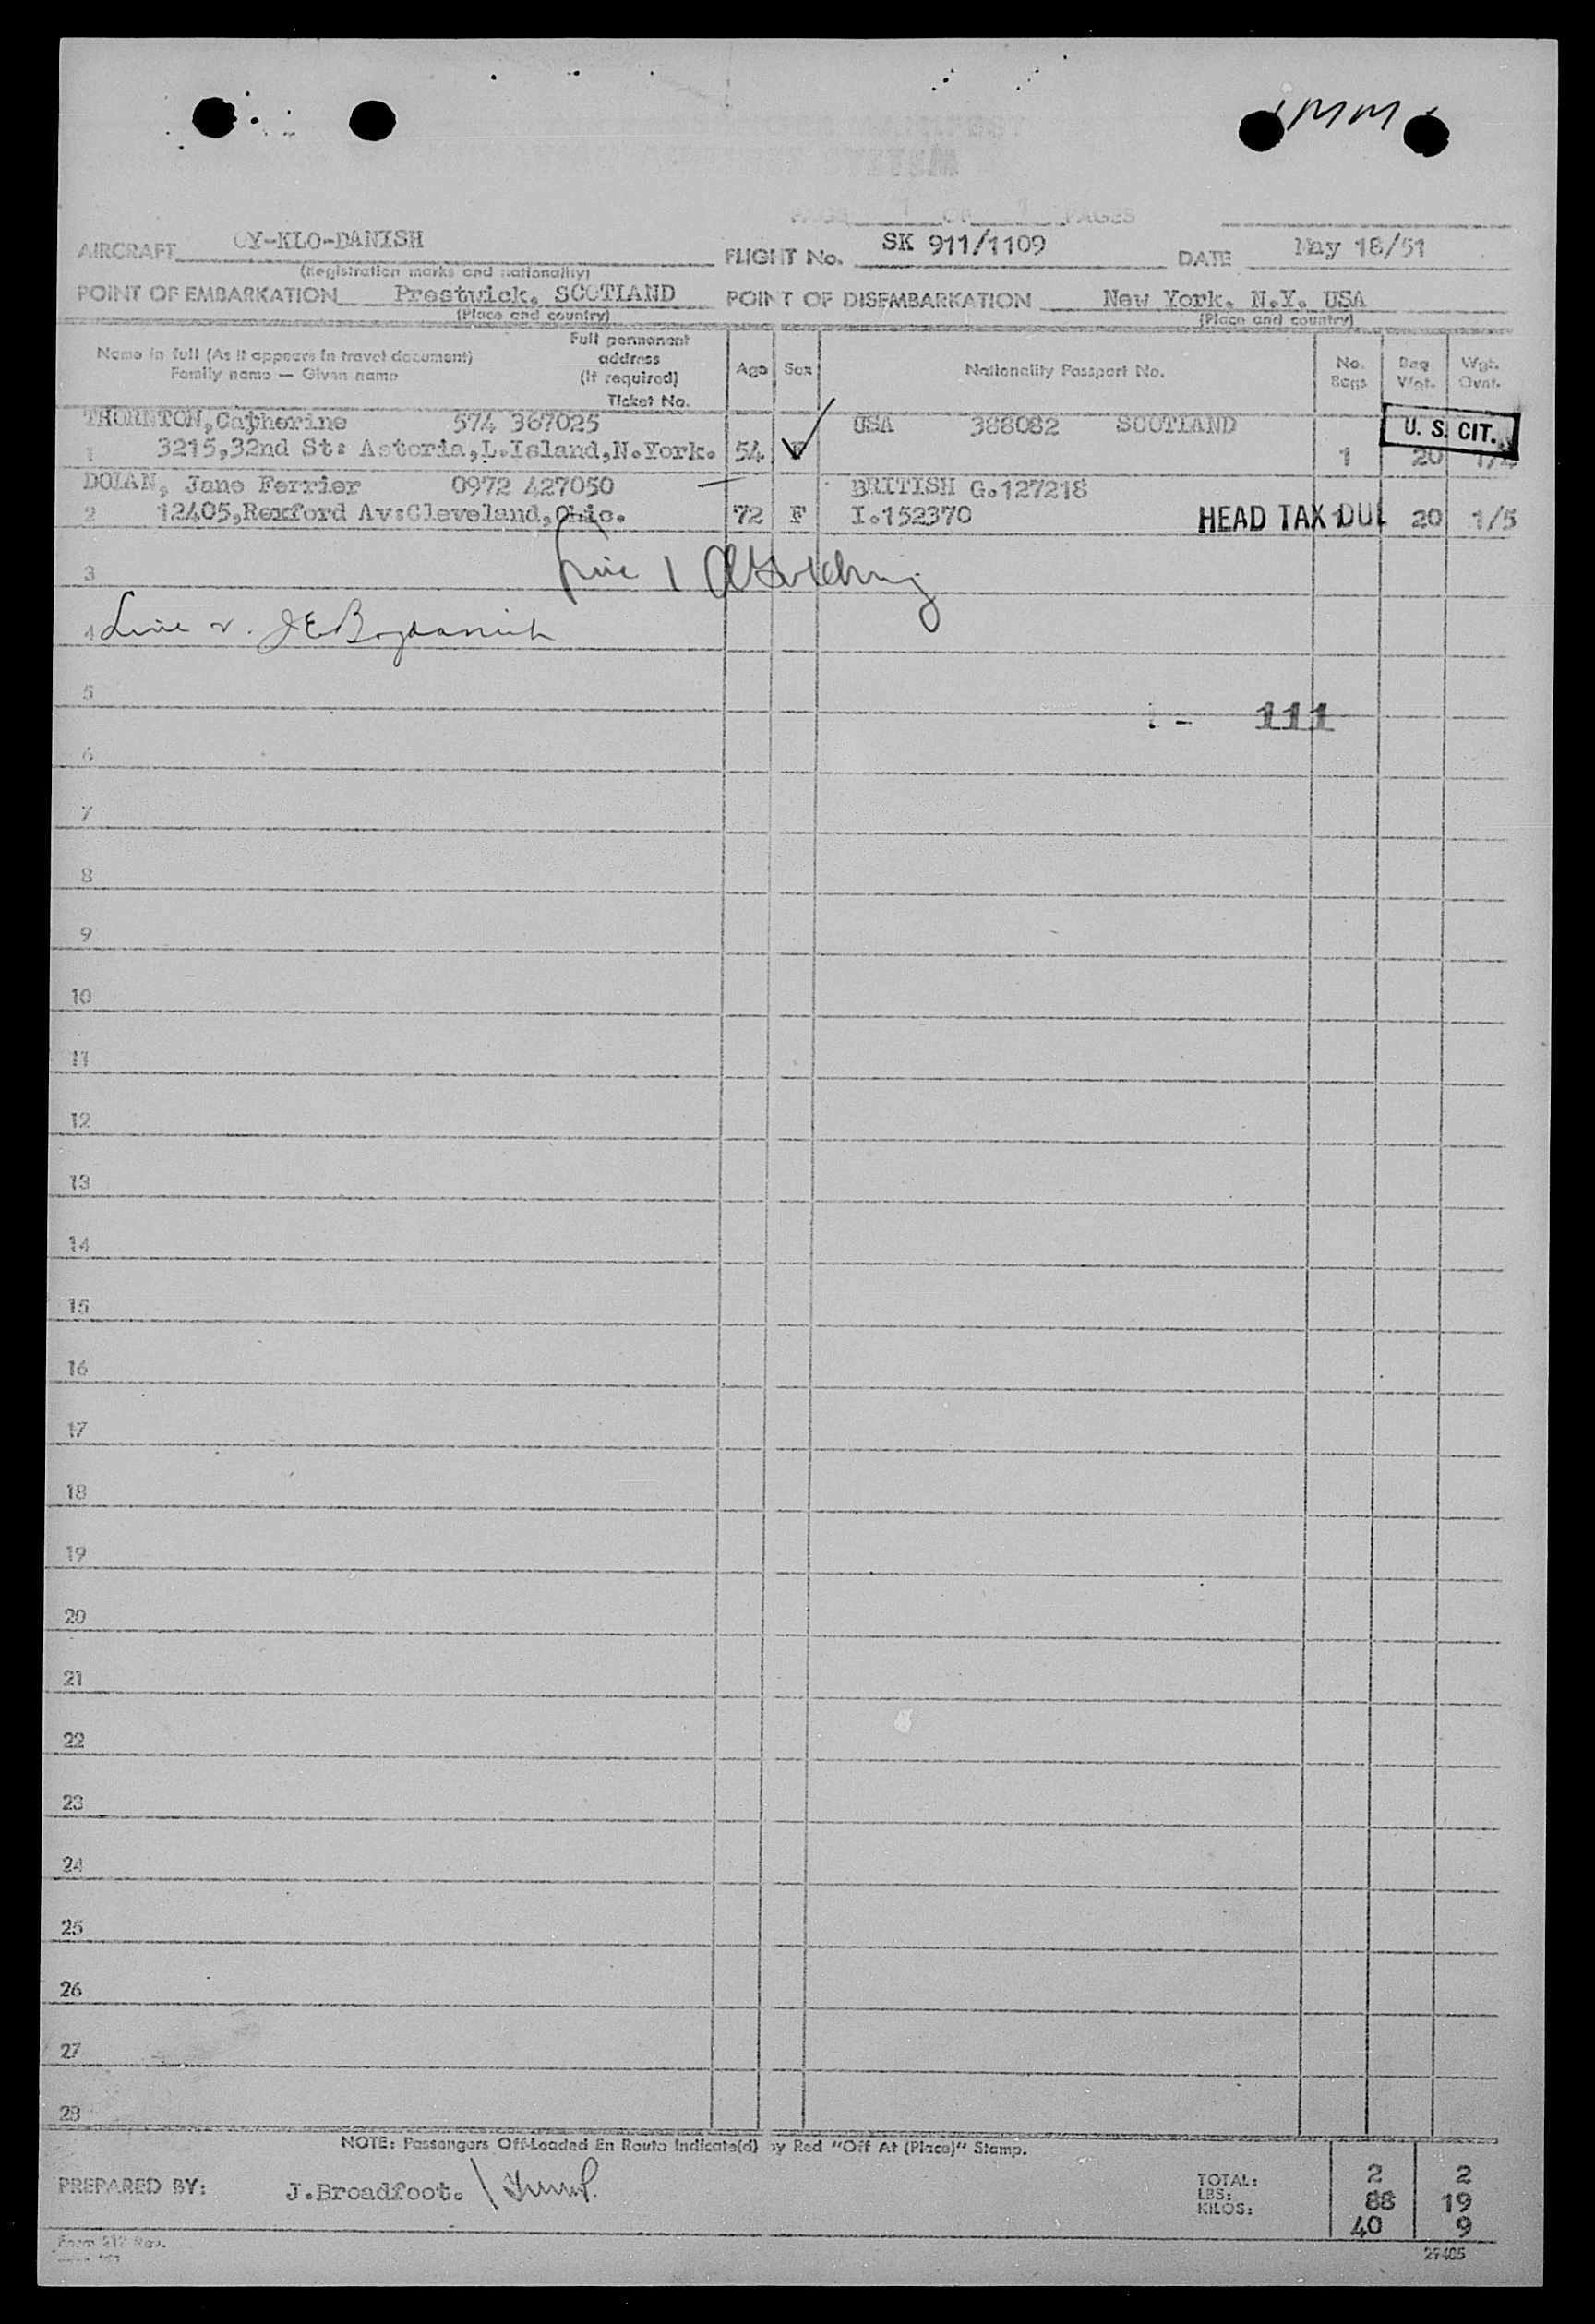 MM
PAGE 1 OF 1 PAGES
AIRCRAFT OY-KLO-DANISH FLIGHT No. SK 911/1109 DATE May 18/51
(Registration marks and nationality)
POINT OF EMBARKATION Prestwick, SCOTLAND POINT OF DISEMBARKATION New York, N.Y. USA
(Place and country) (Place and country)
Name in full (As it appears in travel document) Family name — Given name Full permanent address (If required) Ticket No. Age Sex Nationality Passport No. No. Bags Bag Wgt. Wgt. Ovnt.
THORNTON,Catherine 574 367025 USA 388082 SCOTLAND U. S. CIT.
1 3215,32nd St: Astoria,L.Island,N.York. 54 F 1 20
DOLAN, Jane Ferrier 0972 427050 BRITISH G.127218
2 12405,Rexford Av:Cleveland,Ohio. 72 F I.152370 HEAD TAX DUE 20 1/5
3 Line 1
4 Line 2. J E Bogdanich
5
111
6
7
8
9
10
11
12
13
14
15
16
17
18
19
20
21
22
23
24
25
26
27
28
NOTE: Passengers Off-Loaded En Route Indicate(d) by Red "Off At (Place)" Stamp.
PREPARED BY: J.Broadfoot. TOTAL: 2 2
LBS: 88 19
KILOS: 40 9
Form 212 Rev.
29405